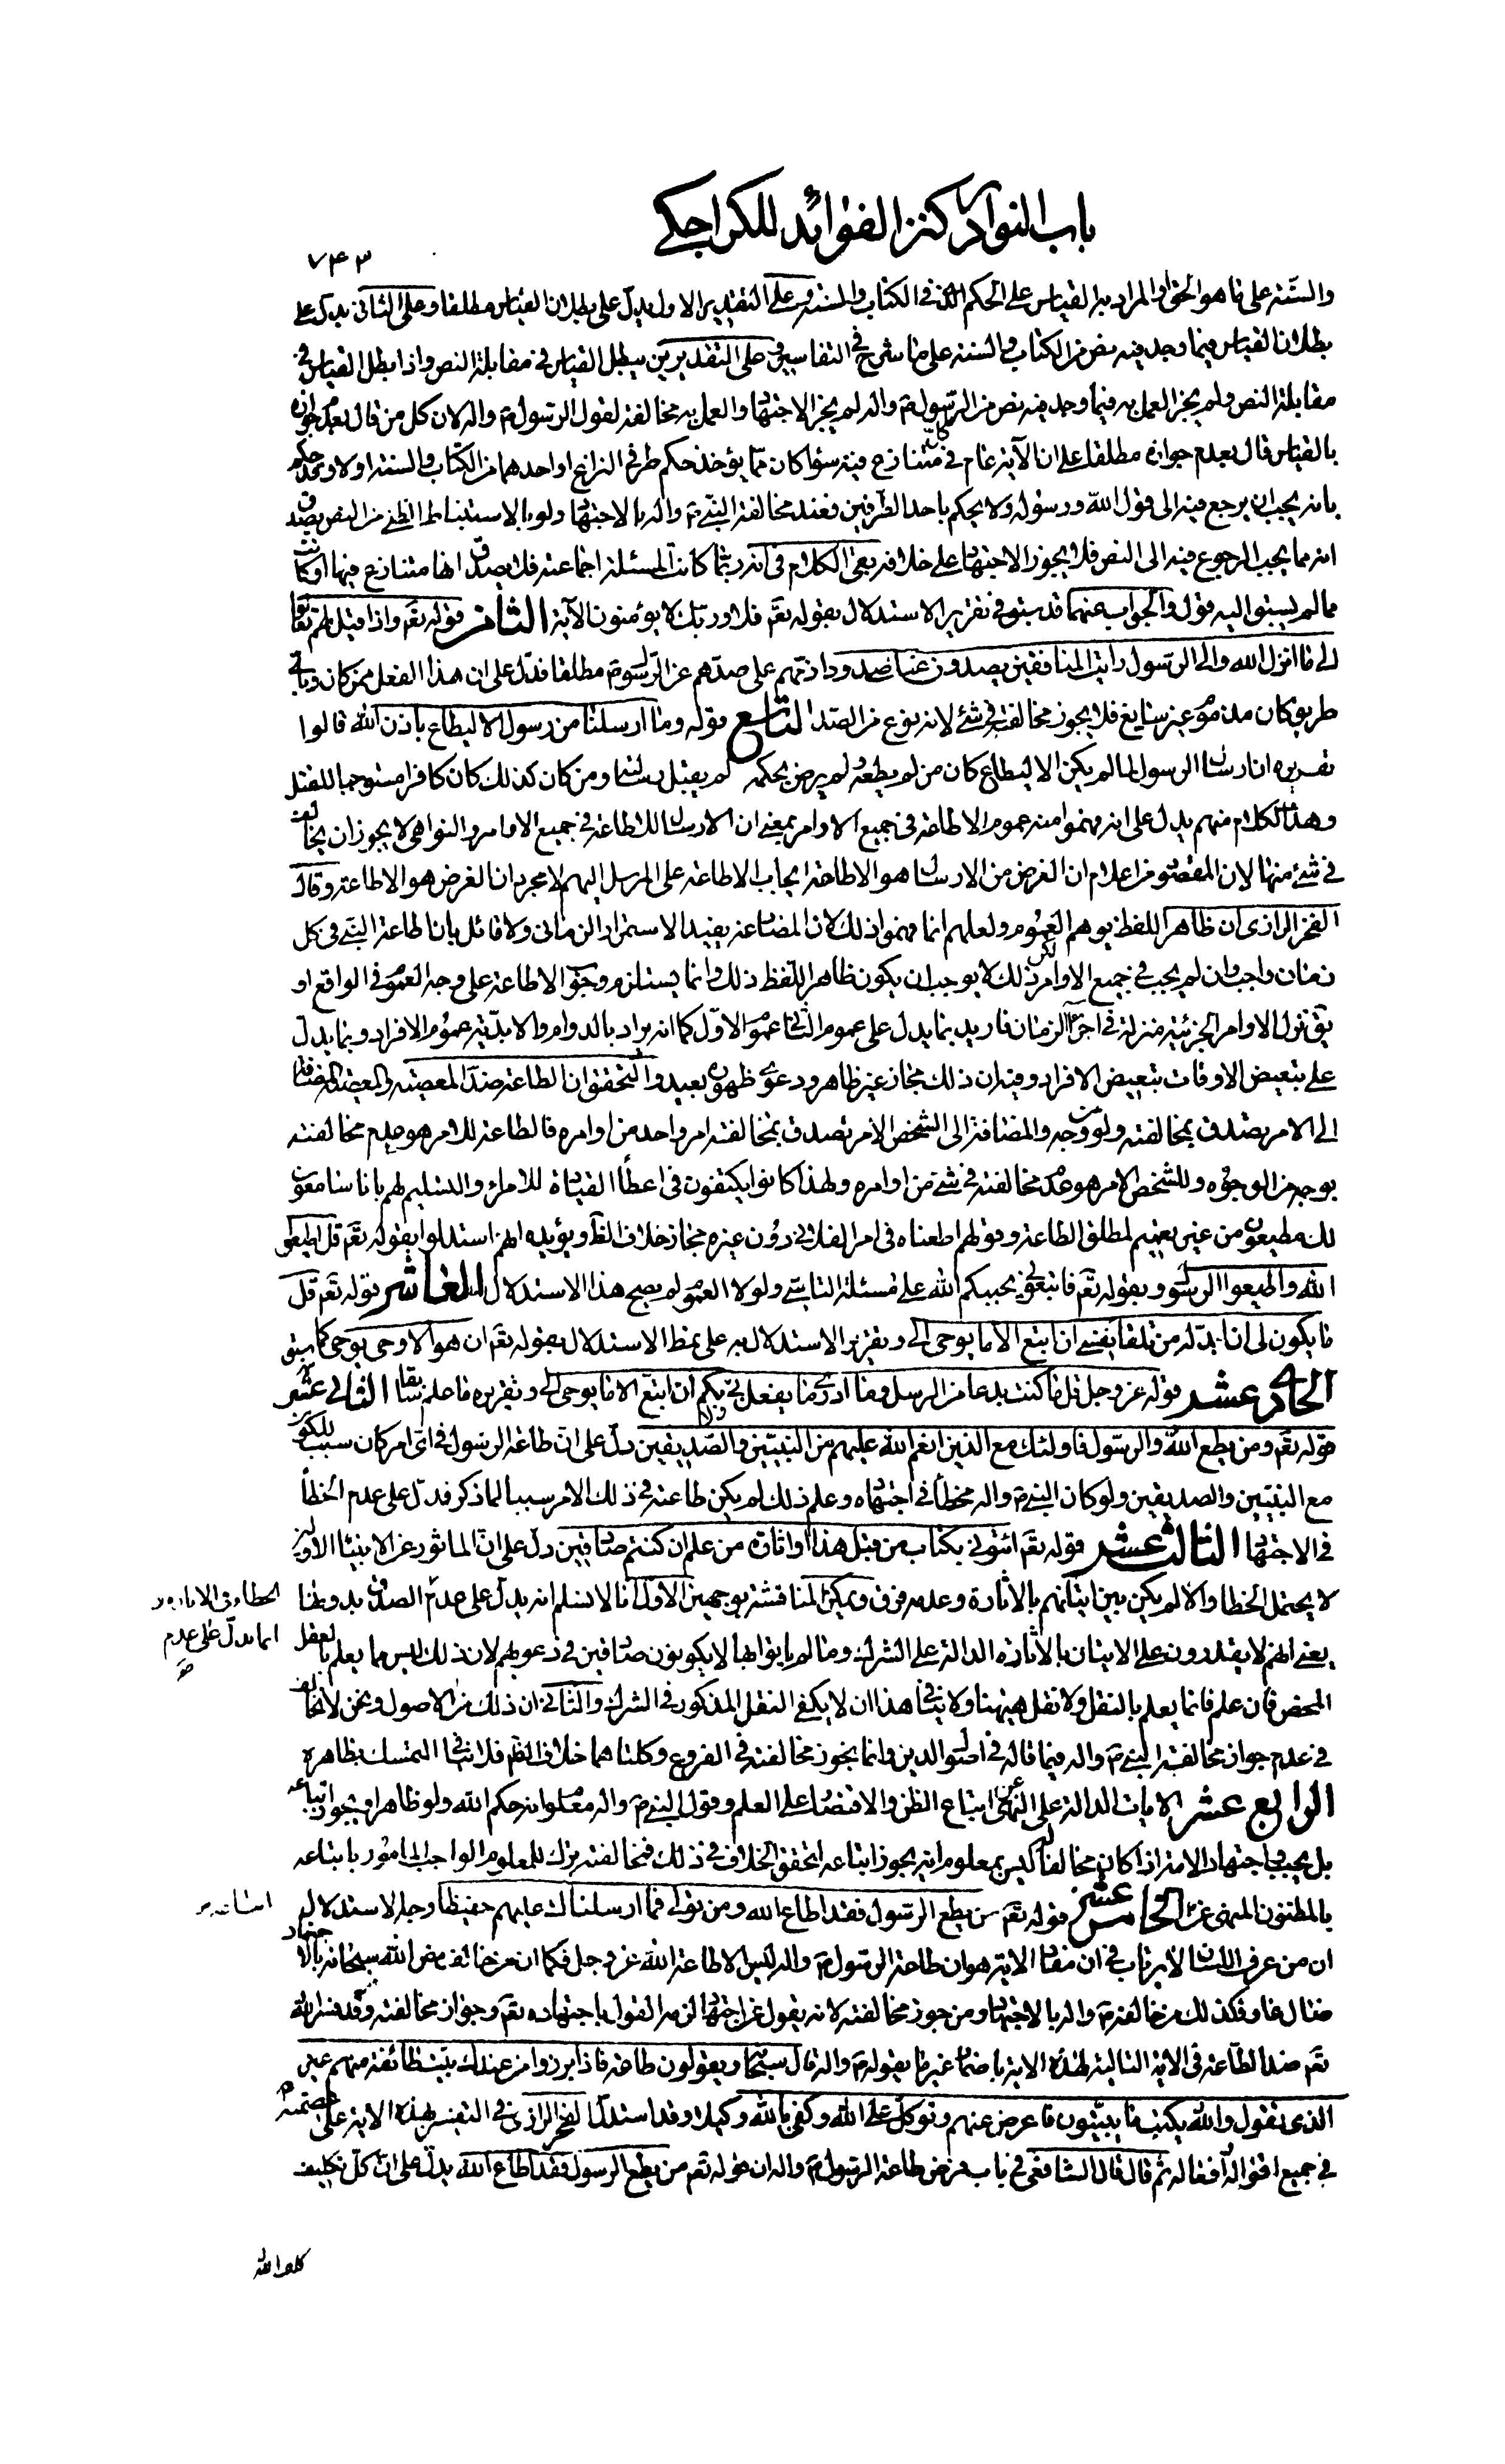 باب النوادر كنز الفوائد للكراجكي
٧٤٣
والسنة على ما هو الحق او المراد به القياس على الحكم الذي في الكتاب والسنة وعلى التقدير الاول يدل على بطلان القياس مطلقا وعلى الثاني يدل على
بطلان القياس فيما وجد فيه نص من الكتاب والسنة على ما شرح في التفاسير وعلى التقديرين يبطل القياس في مقابلة النص واذا بطل القياس في
مقابلة النص ولم يجز العمل به فيما وجد فيه نص من الرسول ص واله لم يجز الاجتهاد والعمل به مخالفة لقول الرسول ص واله لان كل من قال بعدم جوازه
بالقياس قال بعدم جوازه مطلقا على ان الآية عام في كل متنازع فيه سواء كان مما يؤخذ حكم طرفي النزاع او احدهما من الكتاب والسنة اولا وقد حكم
بانه يجب ان يرجع فيه الى قول الله ورسوله ولا يحكم باحد الطرفين فعند مخالفة النبي ص واله بالاجتهاد ولو بالاستنباط الظني من النص يصدق
انه مما يجب الرجوع فيه الى النص فلا يجوز الاجتهاد على خلافه بقي الكلام في انه ربما كانت المسئلة اجماعية فلا يصدق انها متنازع فيها او كانت
مما لم يسبق اليه قول والجواب عنهما قد سبق في تقرير الاستدلال بقوله تعم فلا وربك لا يؤمنون الآية الثامن قوله تعم واذا قيل لهم تعالوا
الى ما انزل الله والى الرسول رايت المنافقين يصدون عنك صدودا ذمهم على صدهم عن الرسول ص مطلقا فدل على ان هذا الفعل ممن كان وباي
طريق كان مذموم غير سايغ فلا يجوز مخالفته في شئ لانه نوع من الصد التاسع قوله وما ارسلنا من رسول الا ليطاع باذن الله قالوا
تقريره ان ارسال الرسول لما لم يكن الا ليطاع كان من لم يطعه ولم يرض بحكمه لم يقبل رسالته ومن كان كذلك كان كافرا مستوجبا للقتل
وهذا الكلام منهم يدل على انه فهموا منه عموم الاطاعة في جميع الاوامر بمعنى ان الارسال للاطاعة في جميع الاوامر والنواهي لا يجوز ان يخالف
في شئ منها لان المقصود من اعلام ان الغرض من الارسال هو الاطاعة ايجاب الاطاعة على المرسل اليهم لا مجرد ان الغرض هو الاطاعة وقال
الفخر الرازي ان ظاهر اللفظ يوهم العموم ولعلهم انما فهموا ذلك لان المضارعة يفيد الاستمرار الزماني ولا قائل بان اطاعة النبي في كل
زمان واجب وان لم يجب في جميع الاوامر لكن ذلك لا يوجب ان يكون ظاهر اللفظ ذلك وانما يستلزم وجوب الاطاعة على وجه العموم في الواقع او
يق تنزل الاوامر الجزئية منزلة في اجزاء الزمان فاريد بما يدل على عموم الثاني عموم الاول كما انه يراد بالدوام والابدية عموم الافراد وبما يدل
على تبعيض الاوقات تبعيض الافراد وفيه ان ذلك مجاز غير ظاهر ودعوى ظهوره بعيد والتحقق ان الطاعة ضد المعصية والمعصية المضافة
الى الامر يصدق بمخالفته ولو بوجه والمضافة الى الشخص الامر تصدق بمخالفة امر واحد من اوامره فالطاعة للامر هو عدم مخالفته
بوجه من الوجوه وللشخص الامر هو عدم مخالفته في شئ من اوامره ولهذا كانوا يكتفون في اعطاء القياد للامراء والتسليم لهم بانا سامعون
لك مطيعون من غير تعميم لمطلق الطاعة وقولهم اطعناه في امر الفلاني دون غيره مجاز خلاف الظ ويؤيده انهم استدلوا بقوله تعم قل اطيعوا
الله واطيعوا الرسول وبقوله تعم فاتبعوني يحببكم الله على مسئلة التاسي ولولا العموم لم يصح هذا الاستدلال العاشر قوله تعم قل
ما يكون لي ان ابدله من تلقاء نفسي ان اتبع الا ما يوحى الي وتقرير الاستدلال به على نمط الاستدلال بقوله تعم ان هو الا وحي يوحى كما سبق
الحادي عشر قوله عز وجل قل ما كنت بدعا من الرسل وما ادري ما يفعل بي ولا بكم ان اتبع الا ما يوحى الي وتقريره ما علم سابقا الثاني عشر
قوله تعم ومن يطع الله والرسول فاولئك مع الذين انعم الله عليهم من النبيين والصديقين دل على ان طاعة الرسول في اي امر كان سبب للكون
مع النبيين والصديقين ولو كان النبي ص واله مخطأ في اجتهاده وعلم ذلك لم يكن طاعته في ذلك الامر سببا لما ذكر فدل على عدم الخطأ
في الاجتهاد الثالث عشر قوله تعم ائتوني بكتاب من قبل هذا او اثارة من علم ان كنتم صادقين دل على ان الماثور عن الانبياء الاولين
لا يحتمل الخطاء والا لم يكن بين اتيانهم بالاثارة وعدمه فرق ويمكن المناقشة بوجهين الاول انا لا نسلم انه يدل على عدم الصدق بدونها
يعني انهم لا يقدرون على الاتيان بالاثارة الدالة على الشرك وما لم ياتوا بها لا يكونون صادقين في دعويهم لان ذلك ليس مما يعلم بالعقل
المحض فان علم فانما يعلم بالنقل ولا نقل ههنا ولا ينافي هذا ان لا يكفي النقل المذكور في الشرك والثاني ان ذلك من الاصول ونحن لا نخالف
في عدم جواز مخالفة النبي ص واله فيما قاله في اصول الدين وانما يجوز مخالفته في الفروع وكلتاهما خلاف الظ فلا ينافي التمسك بظاهره
الرابع عشر الآيات الدالة على النهي عن اتباع الظن والاقتصار على العلم وقول النبي ص واله معلوم انه حكم الله ولو ظاهرا ويجوز اتباعه
بل يجب واجتهاد الامة اذا كان مخالفا له ليس بمعلوم انه يجوز اتباعه لتحقق الخلاف في ذلك فمخالفته ترك للمعلوم الواجب المامور باتباعه
بالمظنون المنهي عنه الخامس عشر قوله تعم من يطع الرسول فقد اطاع الله ومن تولى فما ارسلناك عليهم حفيظا وجه الاستدلال
ان من عرف اللسان لا يرتاب في ان مفاد الآية هو ان طاعة الرسول ص واله ليس الا طاعة الله عز وجل فكما ان من خالف نص الله سبحانه بالاجتهاد
ضال غاو فكذلك من خالفه ص واله بالاجتهاد ومن جوز مخالفته لانه يقول عن اجتهاد لزمه القول باجتهاده تعم وجواز مخالفته وقد فسر الله
تعم ضد الطاعة في الآية التالية لهذه الآية باضمار غير ما يقوله ص واله قال سبحانه ويقولون طاعة فاذا برزوا من عندك بيت طائفة منهم غير
الذي تقول والله يكتب ما يبيتون فاعرض عنهم وتوكل على الله وكفى بالله وكيلا وقد استدل الفخر الرازي في التفسير بهذه الآية على عصمته ص
في جميع اقواله وافعاله ثم قال قال الشافعي في باب فرض طاعة الرسول ص واله ان قوله تعم من يطع الرسول فقد اطاع الله يدل على ان كل تكليف
كلف الله
انما يدل على عدم